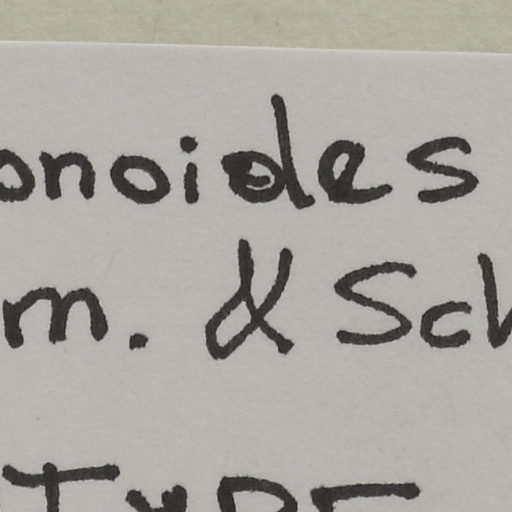 onoides
m. & Sch
TYPE